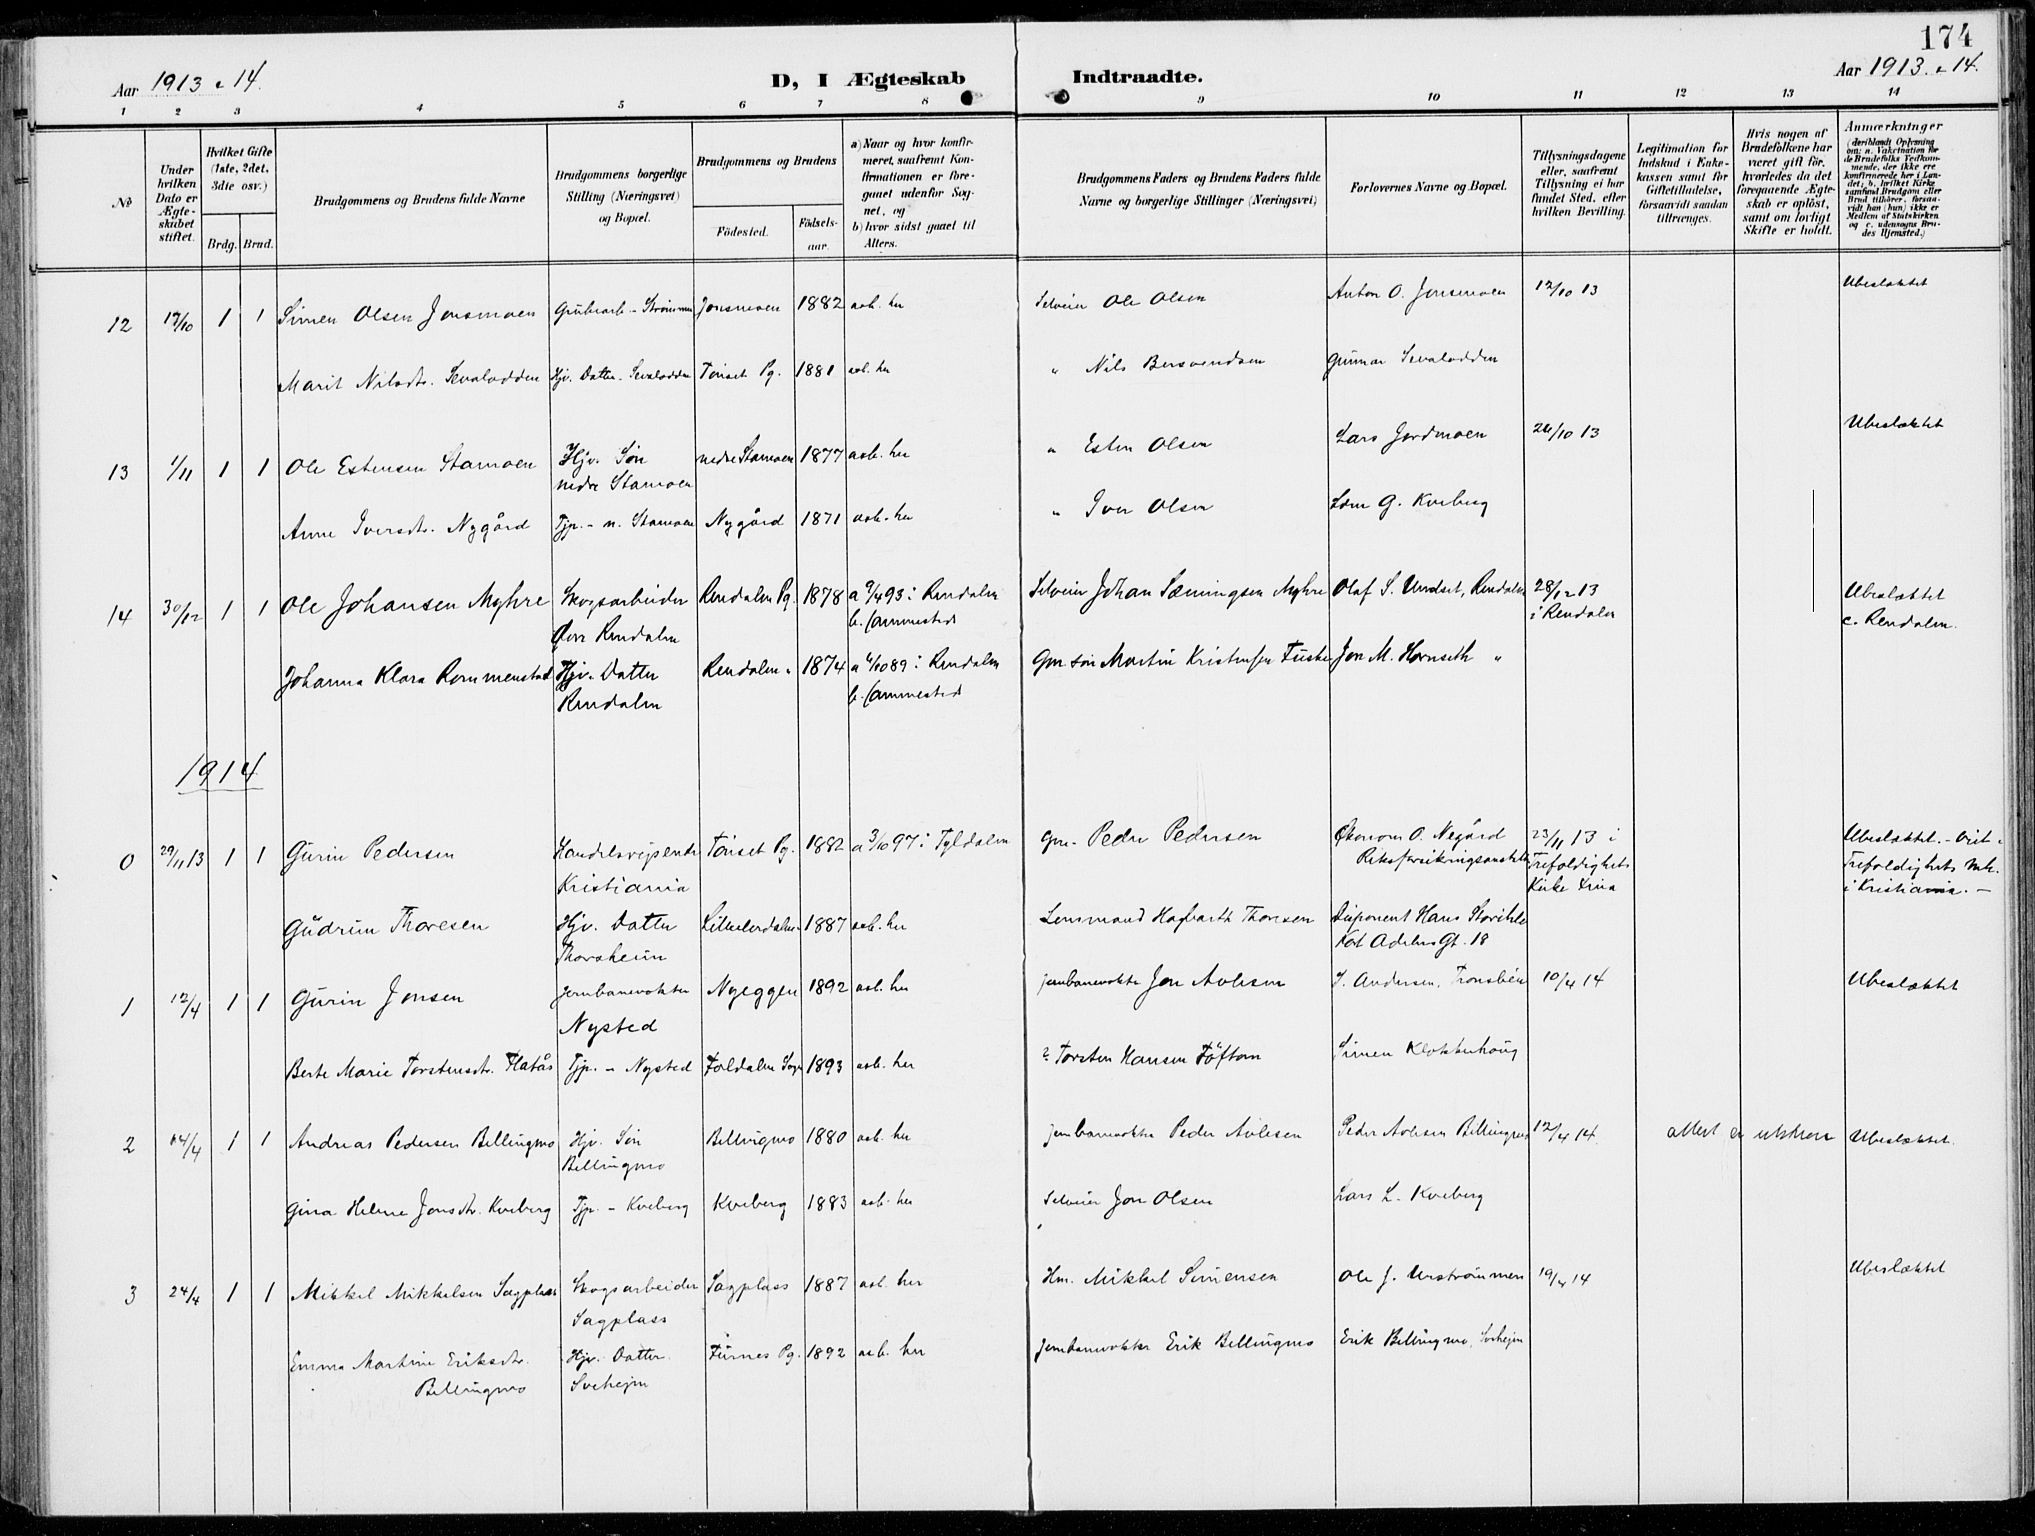 174
Aar 1913 & 14.
D, I Ægteskab Indtraadte.
Aar 1913. & 14.
1 2 3 4 5 6 7 8 9 10 11 12 13 14
No
Under hvilken Dato er Ægteskabet stiftet.
Hvilket Gifte (1ste, 2det, 3die osv.)
Brdg. Brud.
Brudgommens og Brudens fulde Navne
Brudgommens borgerlige Stilling (Næringsvei) og Bopæl.
Brudgommens og Brudens
Födested. Födsels-aar.
a) Naar og hvor konfirmeret, saafremt Konfirmationen er foregaaet udenfor Sognet, og
b) hvor sidst gaaet til Alters.
Brudgommens Faders og Brudens Faders fulde Navne og borgerlige Stillinger (Næringsvei)
Forlovernes Navne og Bopæl.
Tillysningsdagene eller, saafremt Tillysning ei har fundet Sted, efter hvilken Bevilling.
Legitimation for Indskud i Enkekassen samt for Giftetilladelse, forsaavidt saadan tiltrænges.
Hvis nogen af Brudefolkene har været gift för, hvorledes da det foregaaende Ægteskab er oplöst, samt om lovligt Skifte er holdt.
Anmærkninger
12 17/10 1 1 Simen Olsen Jonsmoen Grubearb. - Strømmen Jonsmoen 1882 a.b. her Selveier Ole Olsen Anton O. Jonsmoen 12/10 13 Ubeslæktet
Marit Nilsdtr. Sevalodden Hjv. Datter - Sevalodden Tönset Pg. 1881 a.b. her " Nils Bersvendsen Gunnar Sevalodden
13 1/11 1 1 Ole Estensen Stamoen Hjv. Søn nedre Stamoen 1877 a.b. her " Esten Olsen Lars Jordmoen 26/10 13 Ubeslæktet
nedre Stamoen
Anne Iversdtr. Nygård Tjp. - n. Stamoen Nygård 1871 a.b. her " Iver Olsen G. Kveberg
14 30/12 1 1 Ole Johansen Myhre Skogsarbeider Rendalen Pg. 1878 a 9/4 93 i Rendalen Selveier Johan Sæmingsen Myhre Olaf S. Undset, Rendalen 28/12 13 Ubeslæktet
Øvre Rendalen b. sammesteds i Rendalen c. Rendalen.
Johanna Klara Rommenstad Hjv. Datter Rendalen " 1874 a 6/10 89 i Rendalen Gm søn Martin Kristensen Fiske Jon M. Hornseth "
Rendalen b. sammesteds
1914
0 29/11 13 1 1 Gurin Pedersen Handelsreisende Tönset Pg. 1882 a 3/10 97 i Tyldalen Gm. Peder Pedersen Økonom O. Negård 23/11 13 i Ubeslæktet. - Viet i
Kristiania Riksforsikringsanstalten Trefoldigheds Trefoldigheds
Kirke Kria i Kristiania. -
Gudrun Thoresen Hjv. Datter Lilleelvdalen 1887 a.b. her Lensmand Hagbarth Thoresen Disponent Hans
Thorsheim Kort Adelers Gt. 18
1 12/4 1 1 Gurin Jonsen Jernbanevokter Nyeggen 1892 a.b. her Jernbanevokter Jon Avlesen I. Andersen, Tronsbën 10/4 14 Ubeslæktet
Nysted
Berte Marie Torstensdtr. Flatås Tjp. - Nysted Foldalen Sogn 1893 a.b. her ? Torsten Hansen Töftom Simen Klokkerhaug
2 14/4 1 1 Andreas Pedersen Bellingmo Hjv. Søn Bellingmo 1880 a.b. her Jernbanevokter Peder Avlesen Peder Avlesen Bellingmo 12/4 14. attest er utskrevet Ubeslæktet.
Bellingmo
Gina Helene Jonsdtr. Kveberg Tjp. - Kveberg Kveberg 1883 a.b. her Selveier Jon Olsen Lars L. Kveberg
3 24/4 1 1 Mikkel Mikkelsen Sagplass Skogsarbeider Sagplass 1887 a.b. her Hm. Mikkel Simensen Ole J. Urstrømmen 19/4 14 Ubeslæktet
Sagplass
Emma Martine Eriksdtr. Hjv. Datter. Furnes Pg. 1892 a.b. her Jernbanevokter Erik Bellingmo Erik Bellingmo, Solhejm
Bellingmo Solhejm